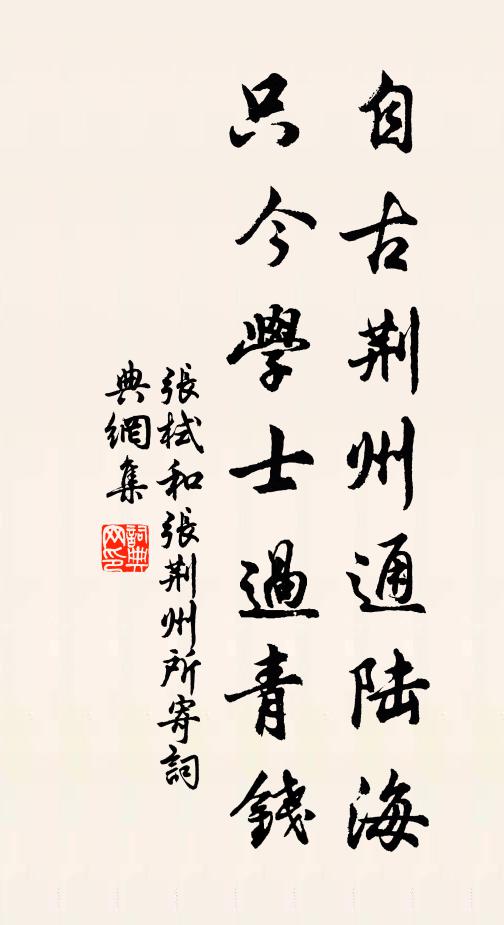 自古荆州通陆海
只今學士過青錢
張栻和張荆州所寄詞
典網集
詞典网印